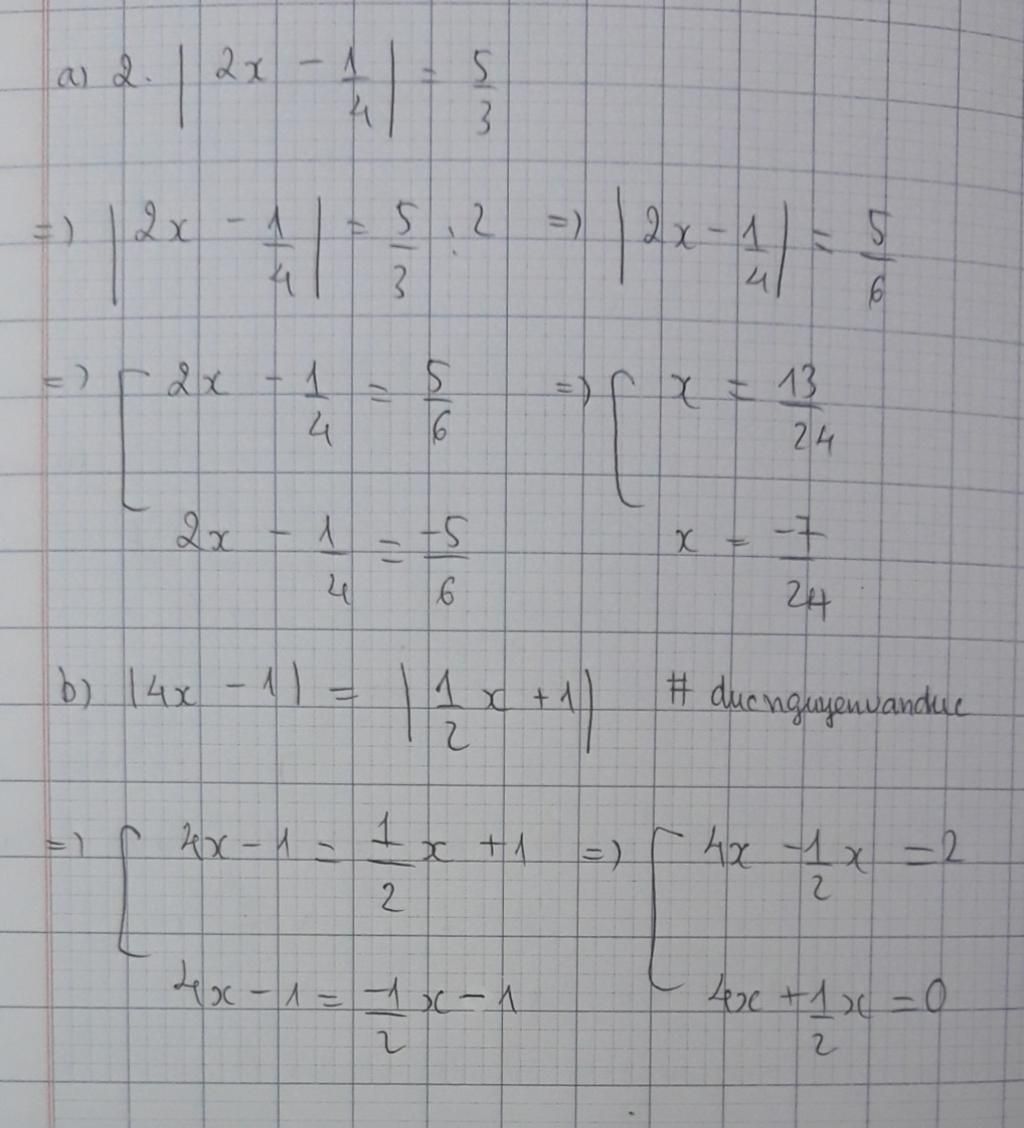 a) 2. | 2x - 1/4 | = 5/3
=> | 2x - 1/4 | = 5/3 : 2 => | 2x - 1/4 | = 5/6
=> [ 2x - 1/4 = 5/6 => [ x = 13/24
2x - 1/4 = -5/6 x = -7/24
b) |4x - 1| = | 1/2 x + 1| # ducnguyenvanduc
=> [ 4x - 1 = 1/2 x + 1 => [ 4x - 1/2 x = 2
4x - 1 = -1/2 x - 1 4x + 1/2 x = 0